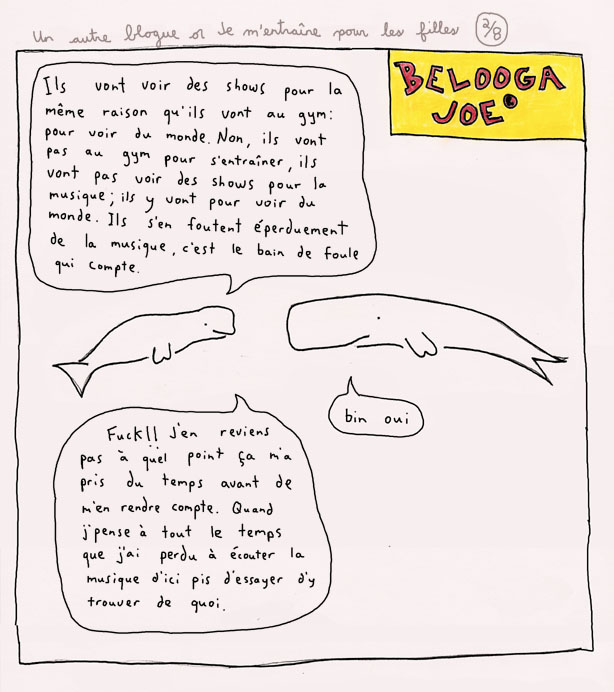 Un autre blogue où Je m'entraîne pour les filles 2/8
BELOOGA
JOE
Ils vont voir des shows pour la
même raison qu'ils vont au gym:
pour voir du monde. Non, ils vont
pas au gym pour s'entraîner, ils
vont pas voir des shows pour la
musique; ils y vont pour voir du
monde. Ils s'en foutent éperduement
de la musique, c'est le bain de foule
qui compte.
bin oui
Fuck!! J'en reviens
pas à quel point ça m'a
pris du temps avant de
m'en rendre compte. Quand
j'pense à tout le temps
que j'ai perdu à écouter la
musique d'ici pis d'essayer d'y
trouver de quoi.